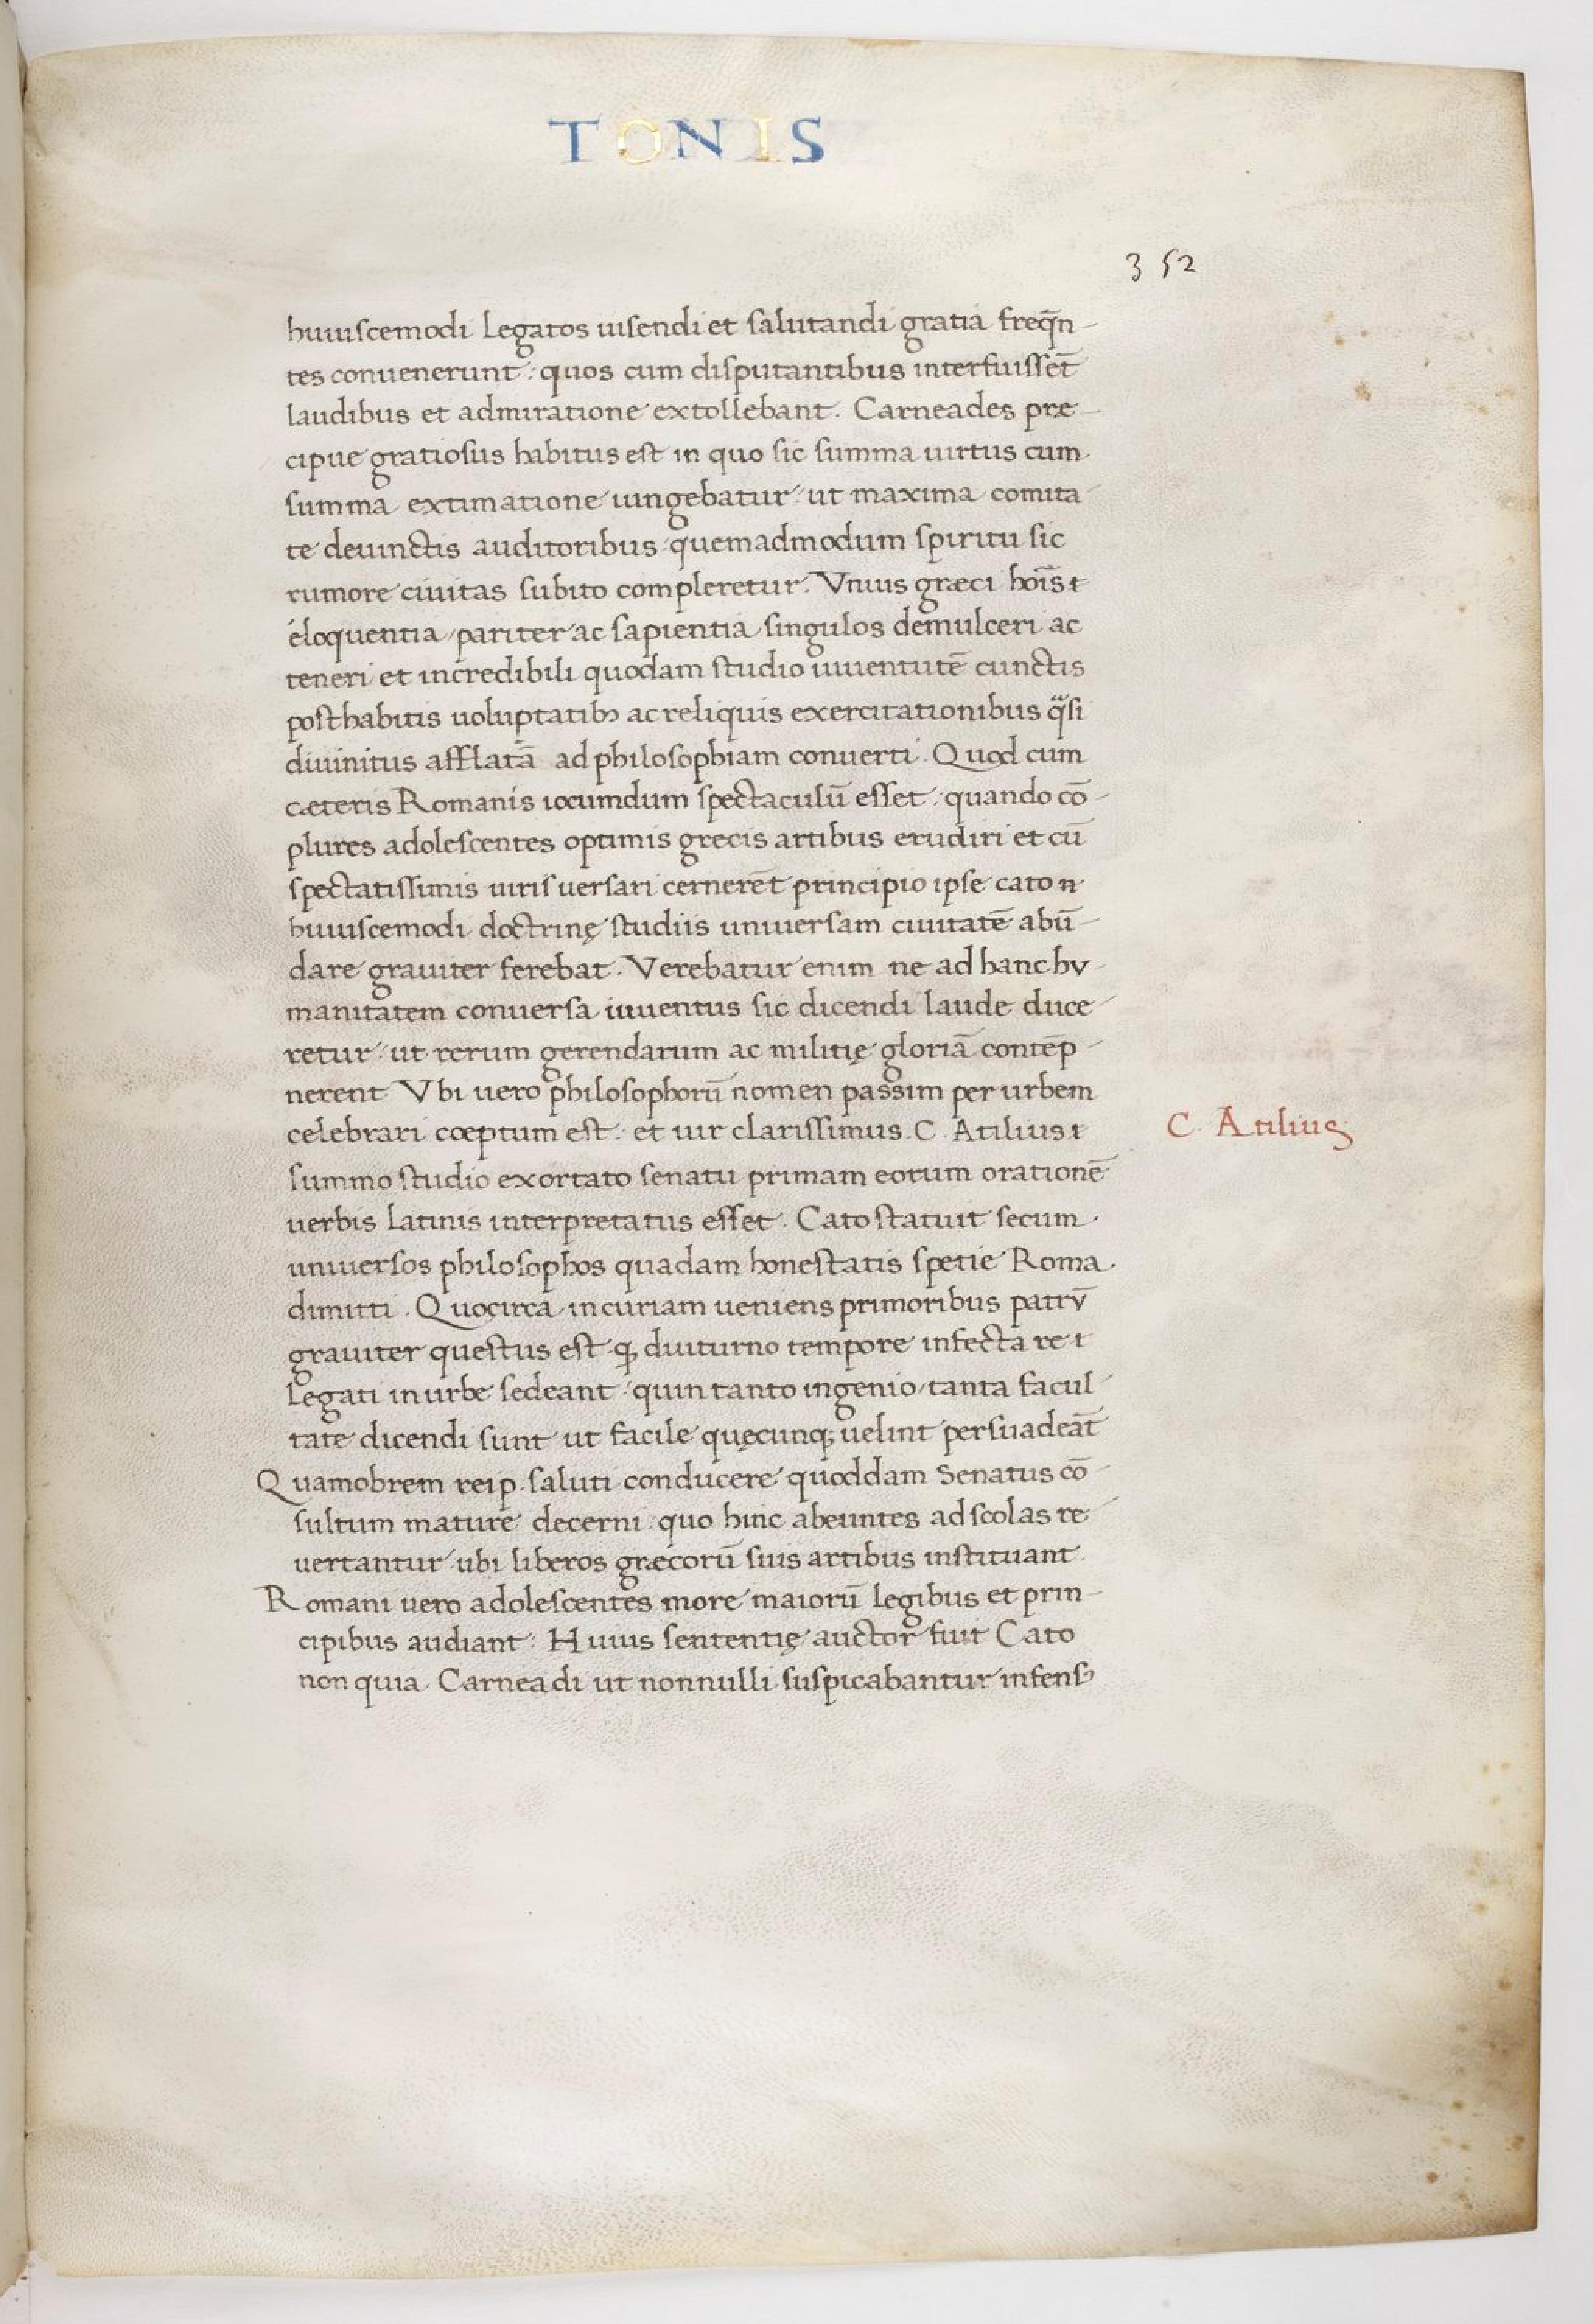 TONIS
352
huiuscemodi legatos uisendi et salutandi gratia freq̄n-
tes conuenerunt: quos cum disputantibus interfuissēt
laudibus et admiratione extollebant. Carneades pre-
cipue gratiosus habitus est in quo sic summa uirtus cum
summa extimatione iungebatur: ut maxima comita-
te deuinctis auditoribus quemadmodum spiritu sic
rumore ciuitas subito compleretur. Vnius græci hoīs
eloquentia/pariter ac sapientia singulos demulceri ac
teneri et incredibili quodam studio iuuentutē cunctis
posthabitis uoluptatibꝫ ac reliquis exercitationibus q̈si
diuinitus afflatā ad philosophiam conuerti. Quod cum
cæteris Romanis iocumdum spectaculū esset: quando cō-
plures adolescentes optimis grecis artibus erudiri et cū
spectatissimis uiris uersari cernerēt principio ipse cato
huiuscemodi doctrinę studiis uniuersam ciuitatē abū-
dare grauiter ferebat. Verebatur enim ne ad hanc hv-
manitatem conuersa iuuentus sic dicendi laude duce-
retur: ut rerum gerendarum ac militię gloriā contēp-
nerent Vbi uero philosophorū nomen passim per urbem
celebrari cœptum est: et uir clarissimus C. Atilius
C. Atilius
summo studio exortato senatu primam eorum orationē
uerbis latinis interpretatus esset. Cato statuit secum
uniuersos philosophos quadam honestatis spetie Roma
dimitti. Quocirca in curiam ueniens primoribus patrv̄
grauiter questus est qꝫ diuturno tempore infecta re
legati in urbe sedeant: quin tanto ingenio/tanta facul-
tate dicendi sunt ut facile quęcunqꝫ uelint persuadeāt
Quamobrem reip. saluti conducere quoddam Senatus cō-
sultum mature decerni: quo hinc abeuntes ad scolas re-
uertantur ubi liberos græcorū suis artibus instituant.
Romani uero adolescentes more maiorū legibus et prin-
cipibus audiant: Huius sententię auctor fuit Cato
non quia Carneadi ut nonnulli suspicabantur infensꝰ